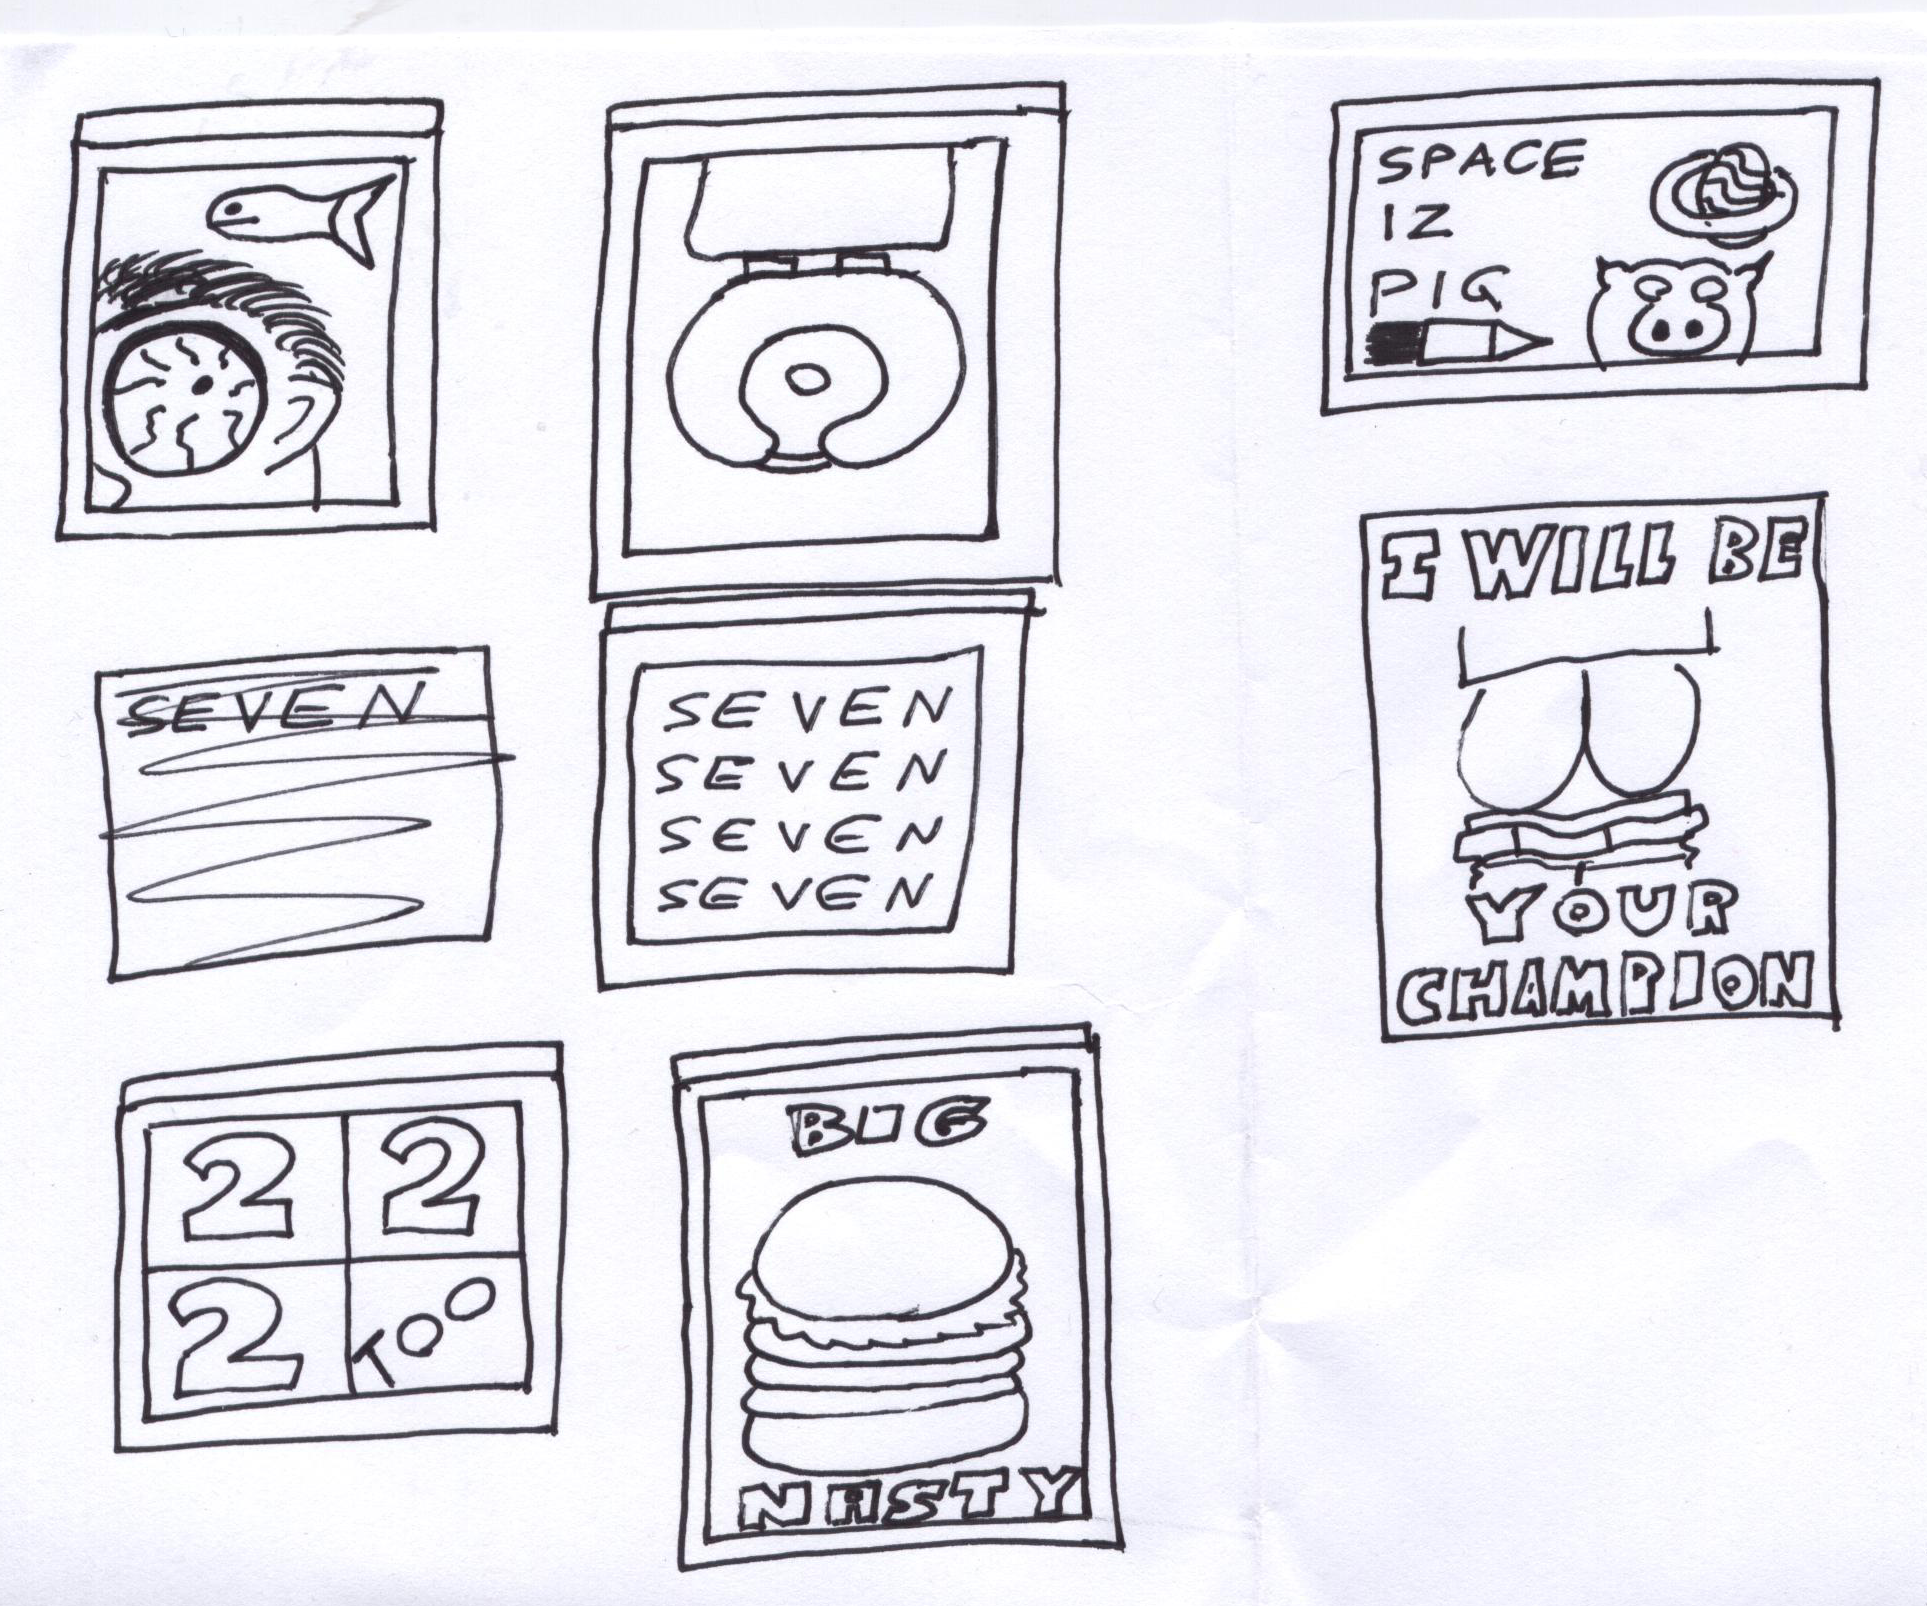 SPACE
IZ
PIG
I WILL BE
YOUR
CHAMPION
SEVEN
SEVEN
SEVEN
SEVEN
SEVEN
2 2
2 TOO
BIG
NASTY